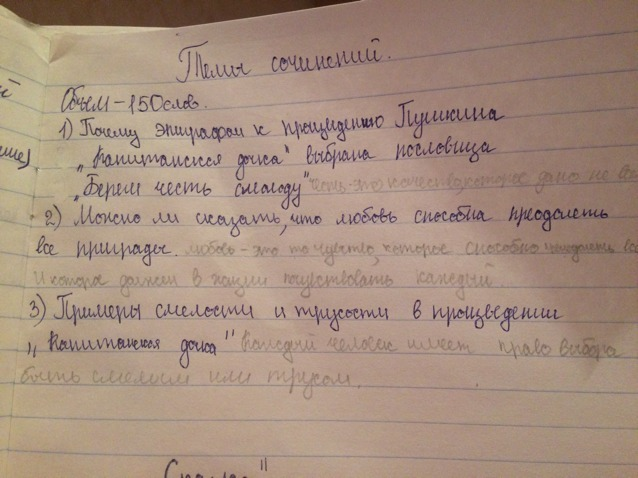 Темы сочинений.
Объем - 150 слов.
1) Почему эпиграфом к произведению Пушкина
"Капитанская дочка" выбрана пословица
"Береги честь смолоду" честь-это качество, которое дано не всем
2) Можно ли сказать, что любовь способна преодолеть
все преграды. любовь - это то чувство, которое способно преодолеть все
и которое должен в жизни почувствовать каждый.
3) Примеры смелости и трусости в произведении
"Капитанская дочка" Каждый человек имеет право выбора
быть смелым или трусом.